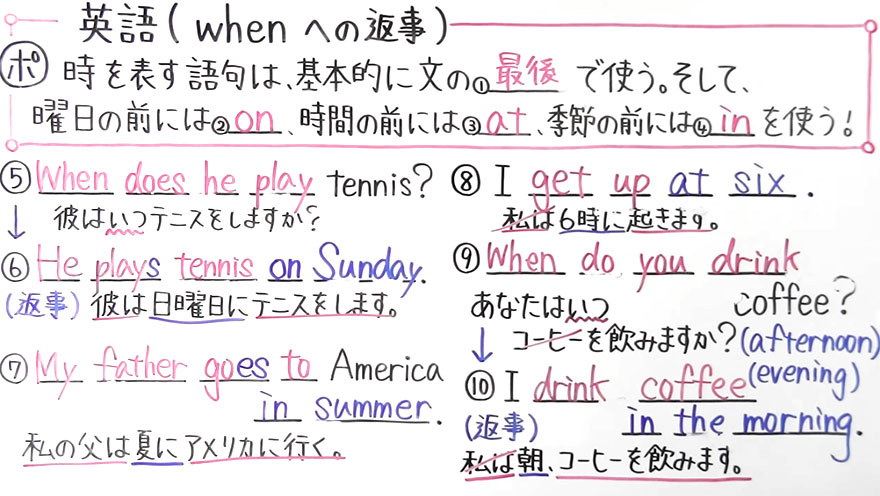 英語(whenへの返事)
ポ 時を表す語句は、基本的に文の①最後で使う。そして、
曜日の前には②on、時間の前には③at、季節の前には④inを使う!
⑤When does he play tennis?
↓ 彼はいつテニスをしますか?
⑥He plays tennis on Sunday.
(返事) 彼は日曜日にテニスをします。
⑦My father goes to America
in summer.
私の父は夏にアメリカに行く。
⑧I get up at six.
私は6時に起きます。
⑨When do you drink
coffee?
あなたはいつ
↓ コーヒーを飲みますか?(afternoon)
(evening)
⑩I drink coffee
(返事) in the morning.
私は朝、コーヒーを飲みます。